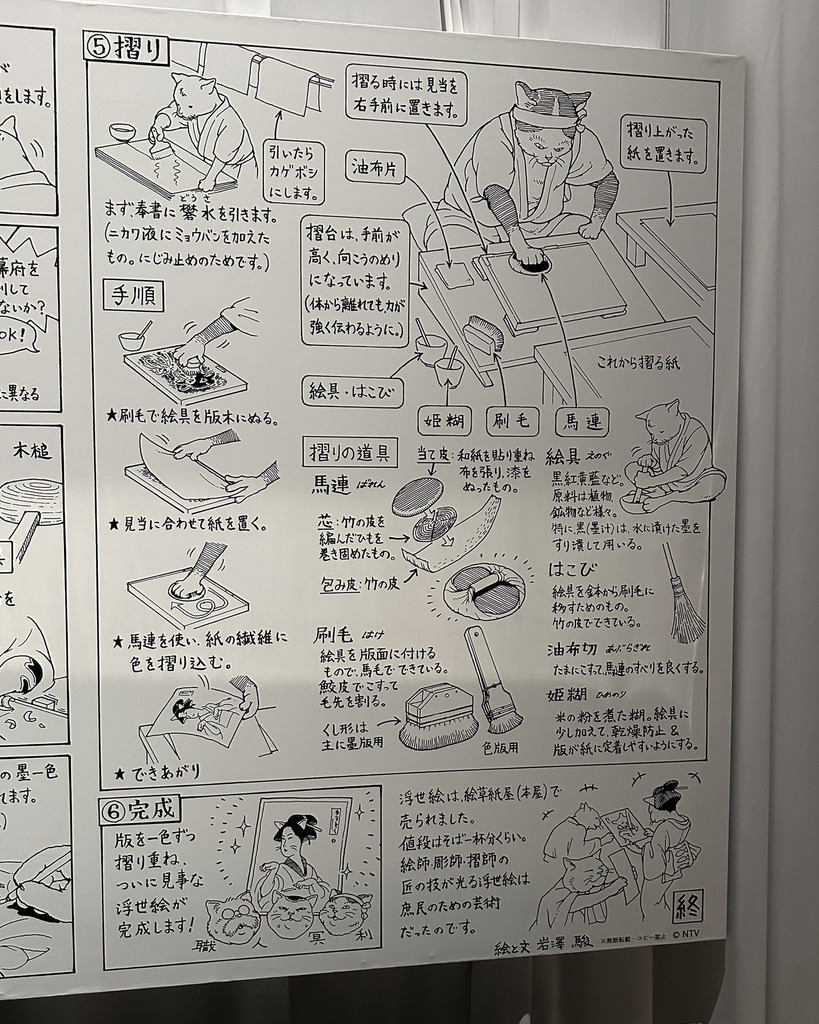 をします。
幕府を
して
ないか?
OK!
に異なる
木槌
を
の墨一色
れます。
⑤摺り
引いたら
カゲボシ
にします。
まず、奉書に礬水を引きます。
どうさ
(ニカワ液にミョウバンを加えた
もの。にじみ止めのためです。)
摺る時には見当を
右手前に置きます。
油布片
摺り上がった
紙を置きます。
摺台は、手前が
高く、向こうのめり
になっています。
(体から離れても力が
強く伝わるように。)
これから摺る紙
絵具・はこび
姫糊
刷毛
馬連
手順
★刷毛で絵具を版木にぬる。
★見当に合わせて紙を置く。
★馬連を使い、紙の繊維に
色を摺り込む。
★できあがり
摺りの道具
馬連 ばれん
当て皮:和紙を貼り重ね
布を張り、漆を
ぬったもの。
芯:竹の皮を
編んだひもを
巻き固めたもの。
包み皮:竹の皮
刷毛 はけ
絵具を版面に付ける
もので、馬毛でできている。
鮫皮でこすって
毛先を割る。
くし形は
主に墨版用
色版用
絵具 えのぐ
黒紅黄藍など。
原料は植物、
鉱物など様々。
特に黒(墨汁)は、水に漬けた墨を
すり潰して用いる。
はこび
絵具を鉢から刷毛に
移すためのもの。
竹の皮でできている。
油布切 あぶらぎれ
たまにこすって、馬連のすべりを良くする。
姫糊 ひめのり
米の粉を煮た糊。絵具に
少し加えて、乾燥防止&
版が紙に定着しやすいようにする。
⑥完成
版を一色ずつ
摺り重ね、
ついに見事な
浮世絵が
完成します!
職人冥利
浮世絵は、絵草紙屋(本屋)で
売られました。
値段はそば一杯分くらい。
絵師・彫師・摺師の
匠の技が光る浮世絵は
庶民のための芸術
だったのです。
終
絵と文 岩澤 駿
※無断転載・コピー禁止
© NTV